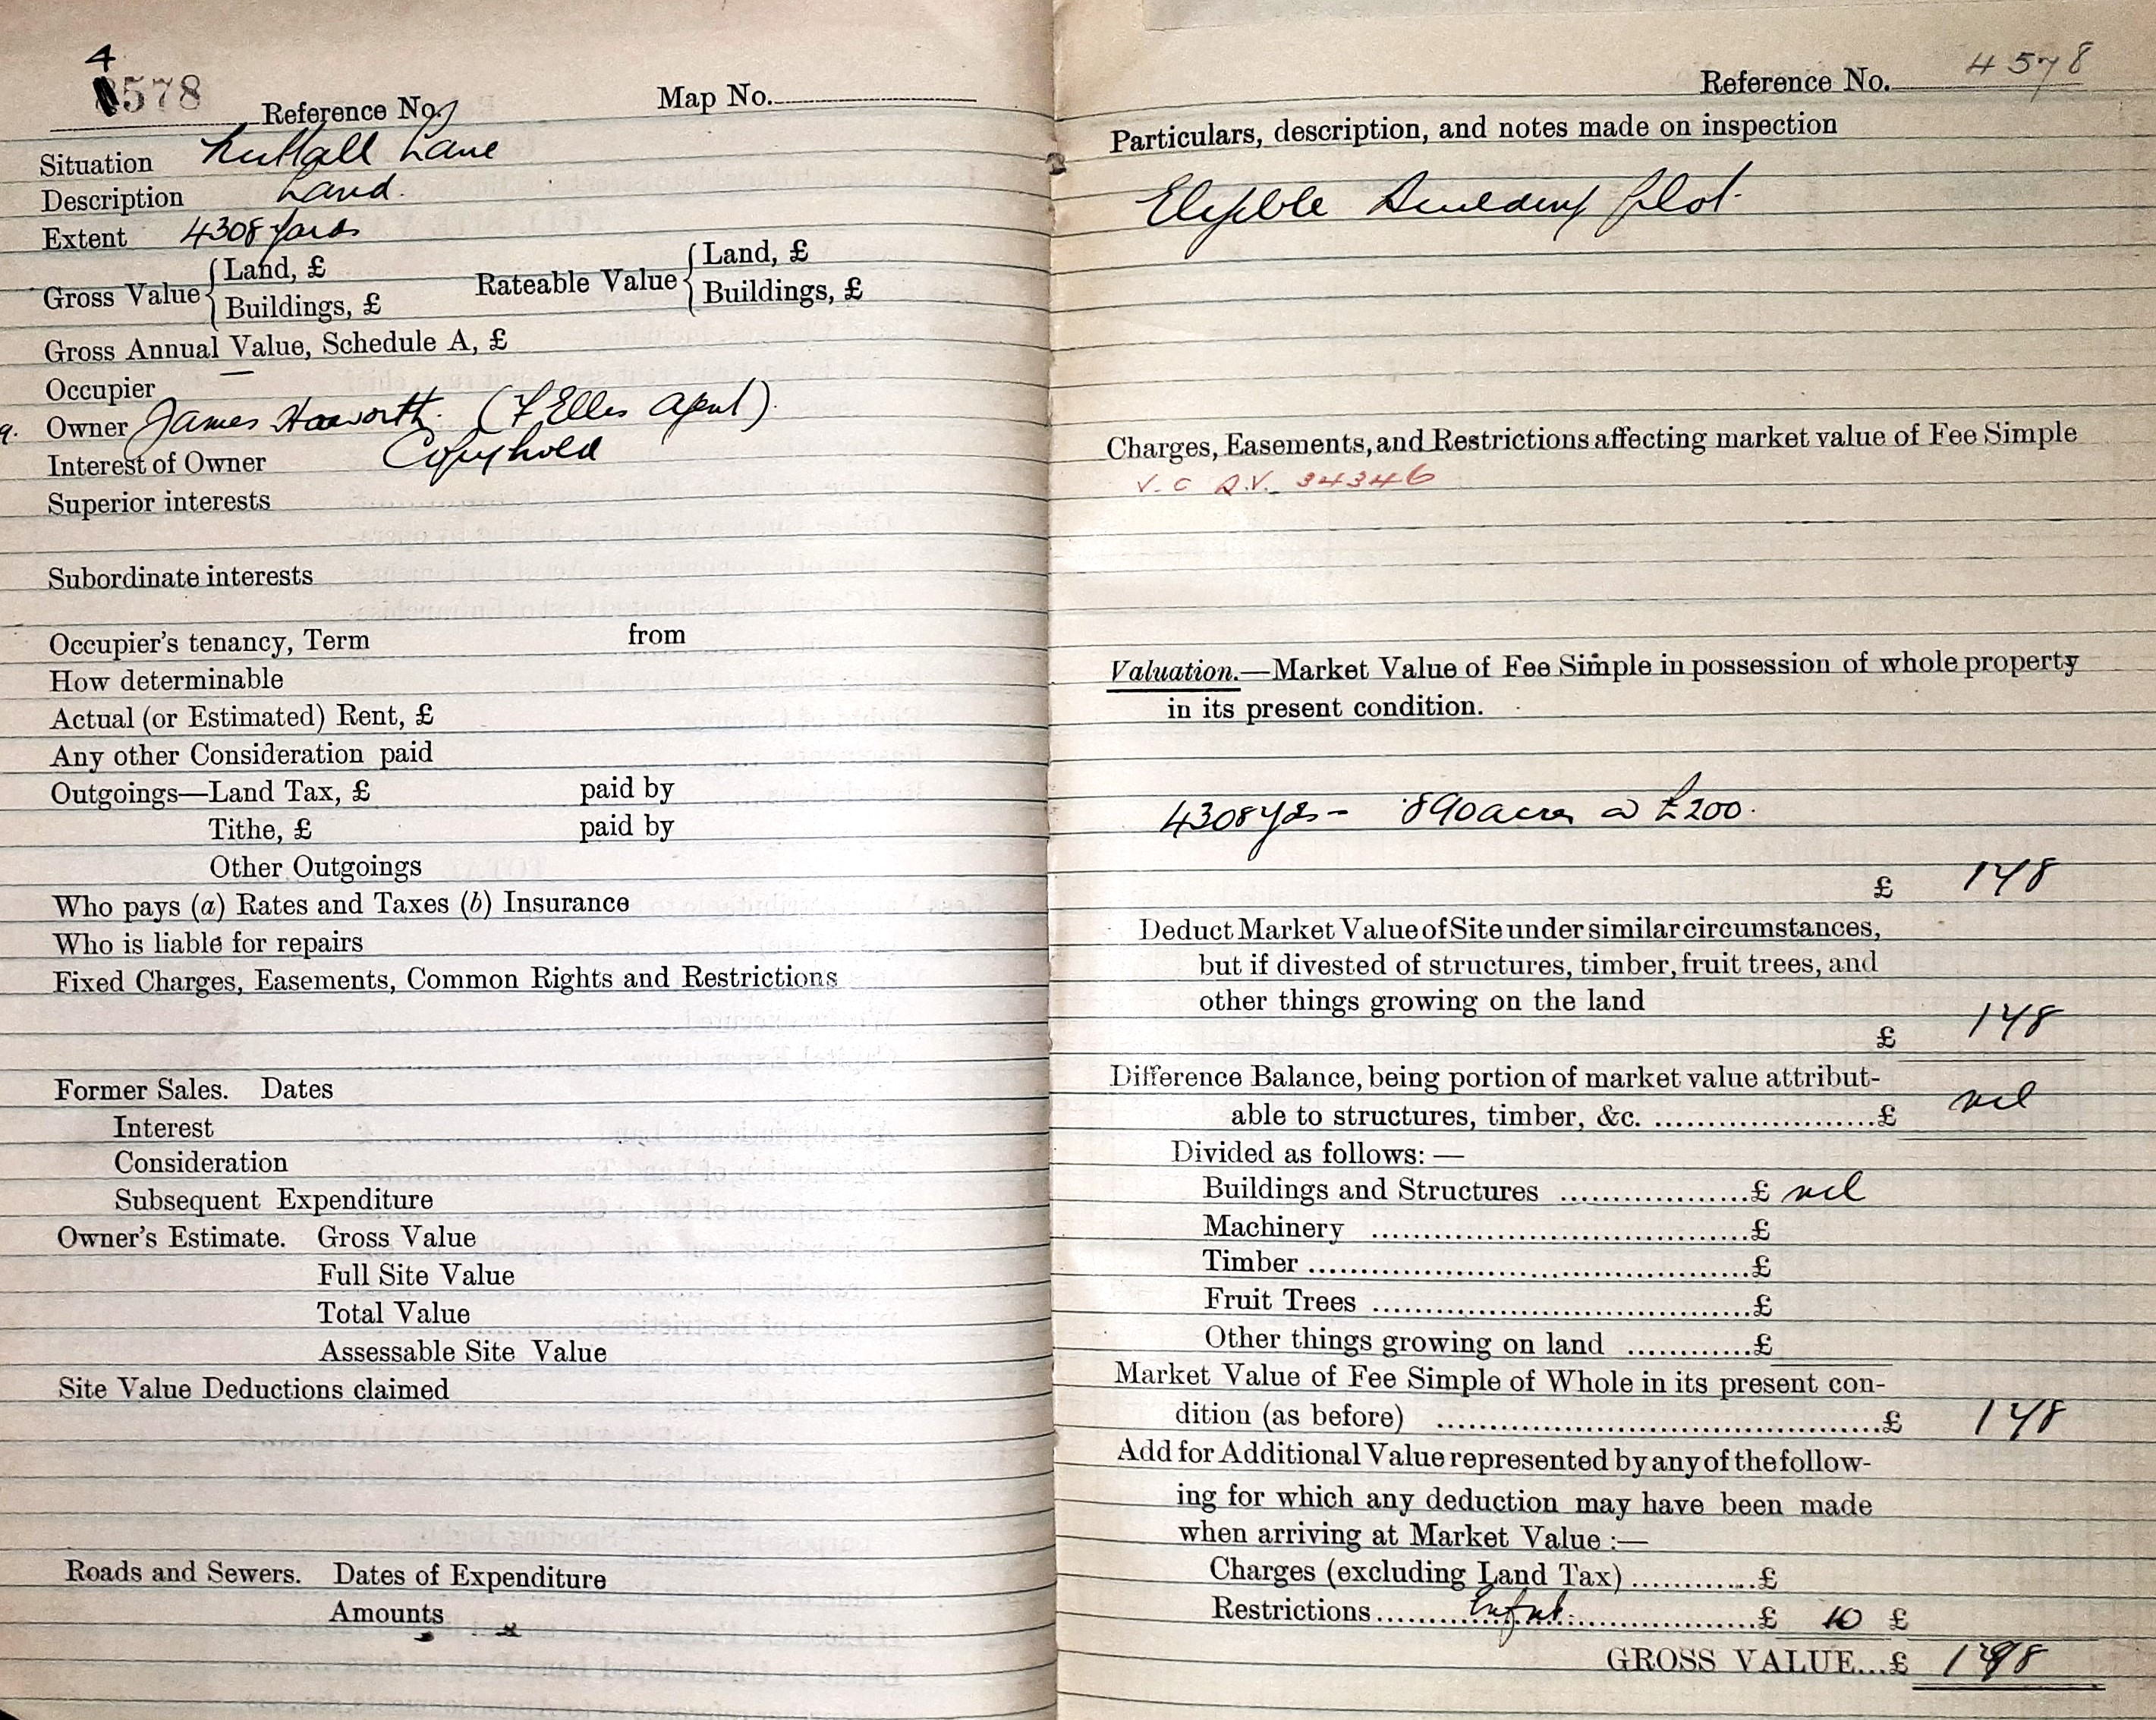 4
578 Reference No. Map No.
Situation Nuttall Lane
Description Land.
Extent 4308 yards
Gross Value { Land, £ Rateable Value { Land, £
Buildings, £ Buildings, £
Gross Annual Value, Schedule A, £
Occupier —
Owner James Haworth. (F Elles agent).
Interest of Owner Copyhold
Superior interests
Subordinate interests
Occupier's tenancy, Term from
How determinable
Actual (or Estimated) Rent, £
Any other Consideration paid
Outgoings—Land Tax, £ paid by
Tithe, £ paid by
Other Outgoings
Who pays (a) Rates and Taxes (b) Insurance
Who is liable for repairs
Fixed Charges, Easements, Common Rights and Restrictions
Former Sales. Dates
Interest
Consideration
Subsequent Expenditure
Owner's Estimate. Gross Value
Full Site Value
Total Value
Assessable Site Value
Site Value Deductions claimed
Roads and Sewers. Dates of Expenditure
Amounts
Reference No. 4578
Particulars, description, and notes made on inspection
Eligible Building plot.
Charges, Easements, and Restrictions affecting market value of Fee Simple
V.C. R.V. 34346
Valuation.—Market Value of Fee Simple in possession of whole property
in its present condition.
4308 yds - .890 acres @ £200.
£ 148
Deduct Market Value of Site under similar circumstances,
but if divested of structures, timber, fruit trees, and
other things growing on the land
£ 148
Difference Balance, being portion of market value attribut-
able to structures, timber, &c. ....................£ nil
Divided as follows:—
Buildings and Structures ..................£ nil
Machinery ....................................£
Timber ..........................................£
Fruit Trees ....................................£
Other things growing on land ............£
Market Value of Fee Simple of Whole in its present con-
dition (as before) ...........................................£ 148
Add for Additional Value represented by any of the follow-
ing for which any deduction may have been made
when arriving at Market Value :—
Charges (excluding Land Tax) ............£
Restrictions ........ £ 10 £
GROSS VALUE...£